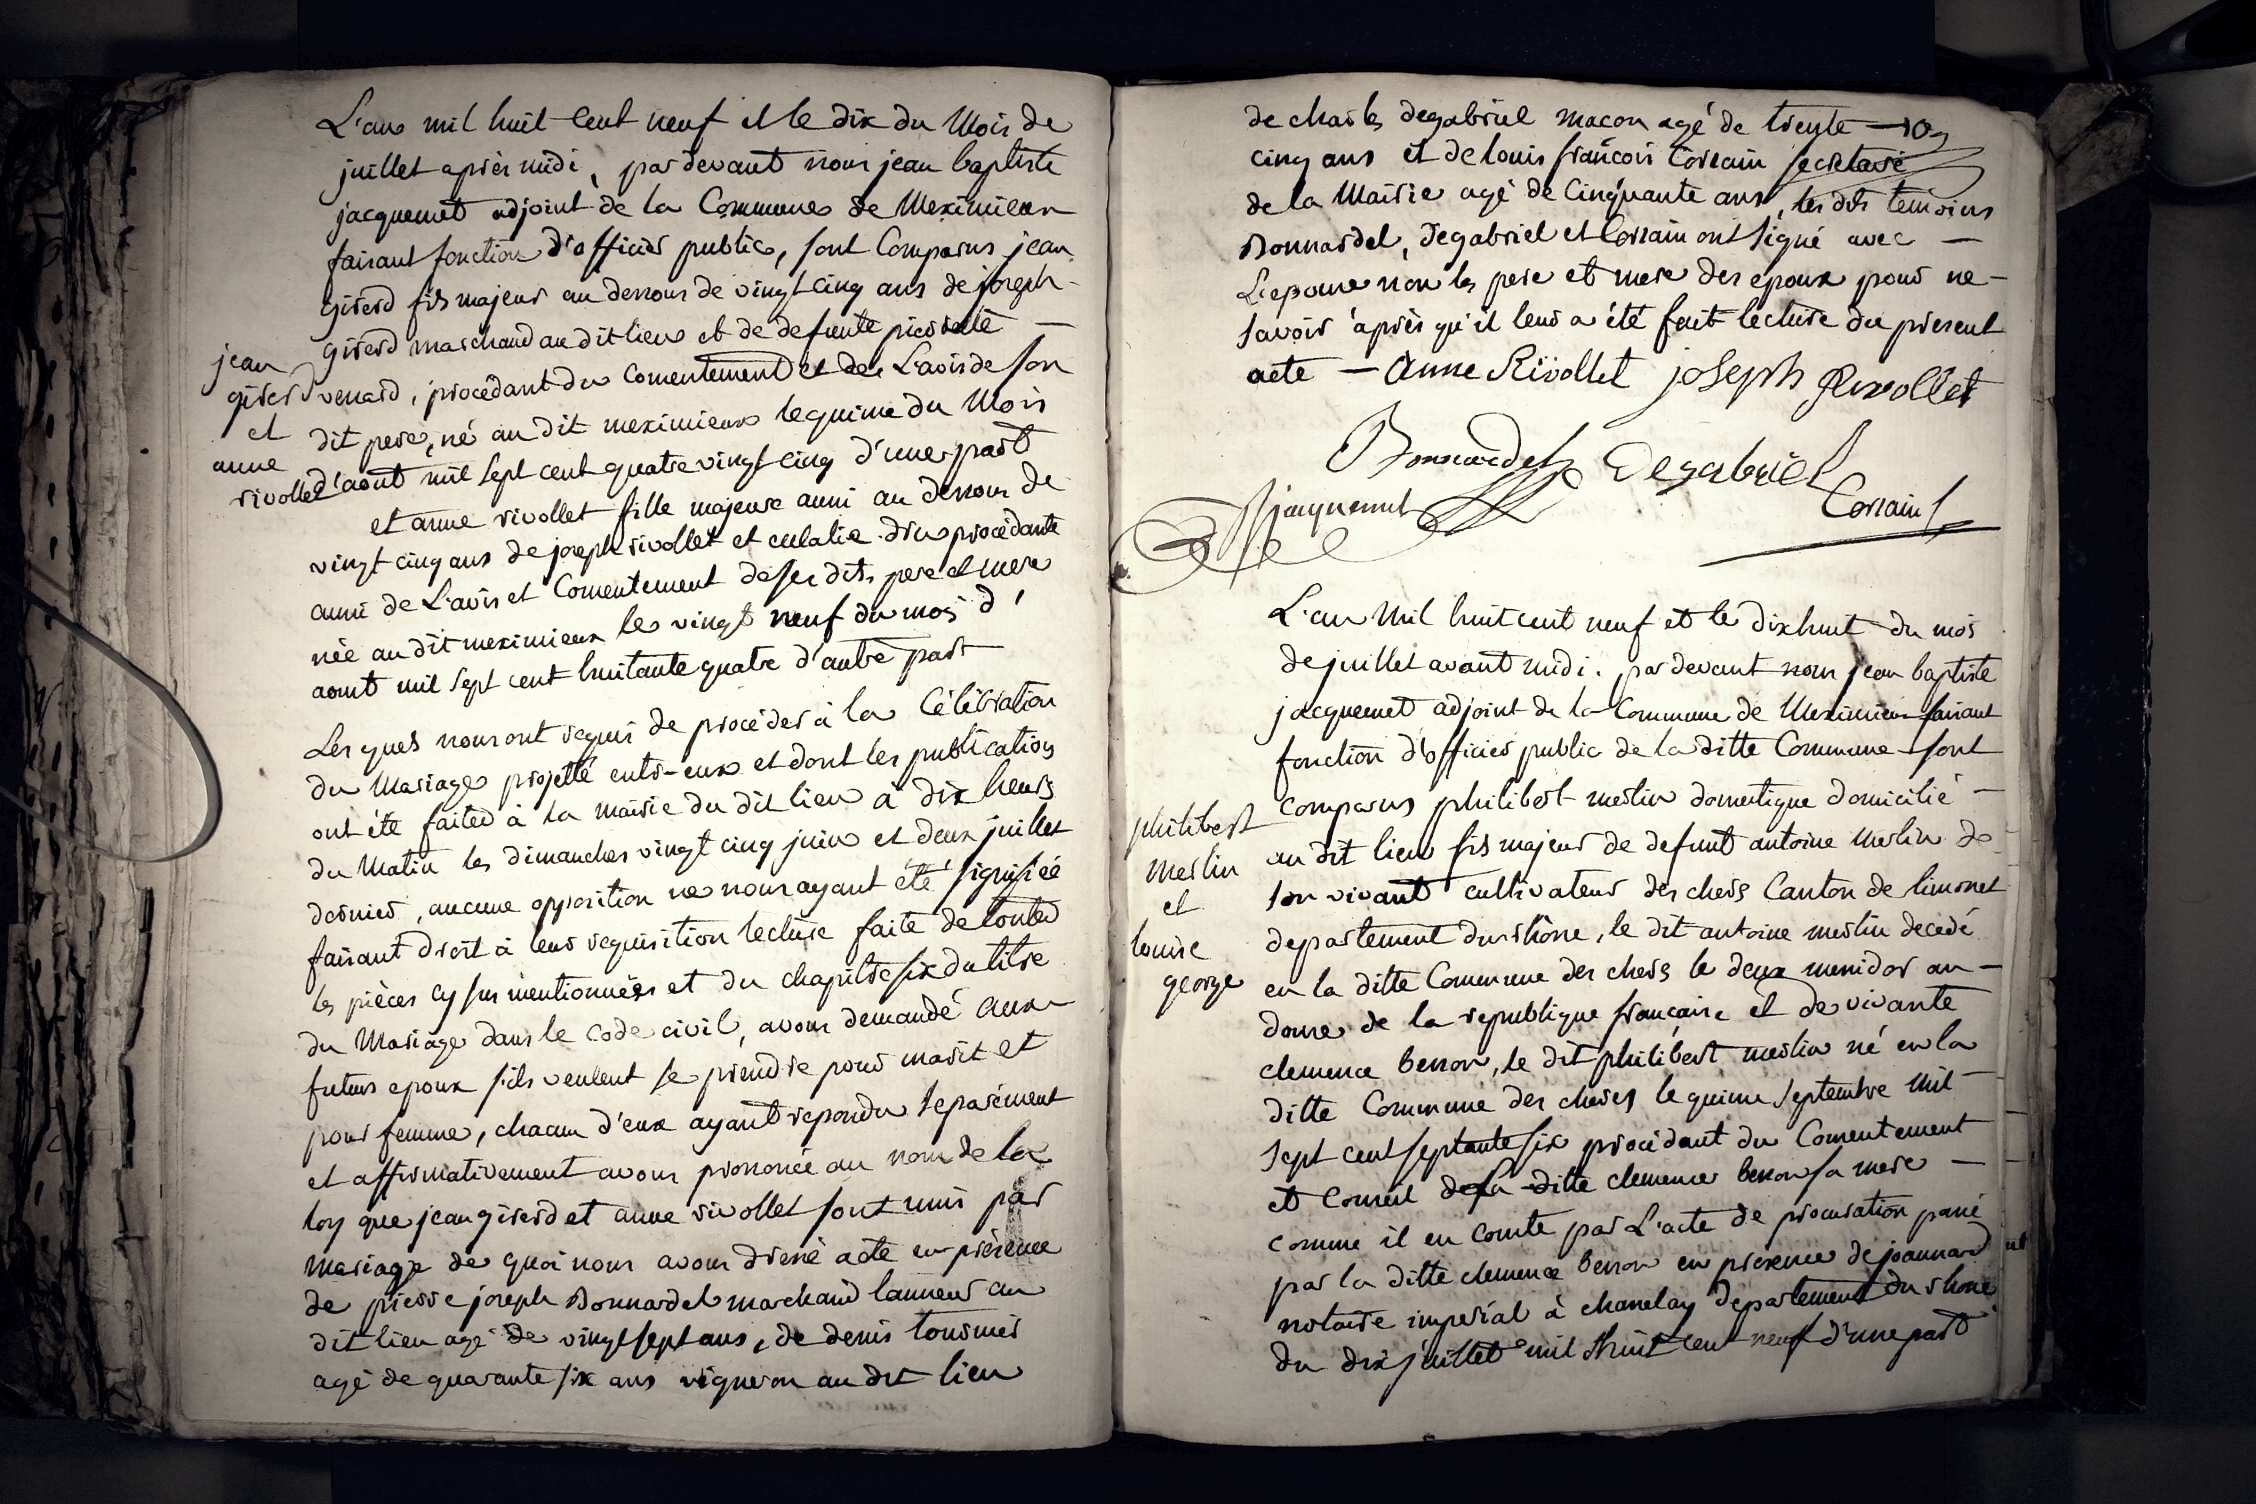 L'an mil huit Cent neuf et le dix du Mois de
juillet après midi, pardevant nous jean baptiste
jacquemet adjoint de la Commune de Meximieux
faisant fonction d'officier public, sont Comparus jean
girerd fils majeur au dessous de vingt cinq ans de joseph
girerd marchand au dit lieu et de defunte pierrette —
venard, procédant du Consentement et de L'avis de son
dit pere, né au dit meximieux le quinze du Mois
d'aout mil sept cent quatre vingt cinq d'une part
jean
girerd
et
anne
rivollet
et anne rivollet fille majeure aussi au dessous de
vingt cinq ans de joseph rivollet et eulalie procédante
aussi de L'avis et Consentement de ses dits pere et mere
née au dit meximieux le vingt neuf du mois d'
aout mil sept cent huitante quatre d'autre part
Lesquels nous ont requis de procéder à la Célébration
du Mariage projetté entr-eux et dont les publications
ont été faites à la mairie du dit lieu à dix heures
du Matin les dimanches vingt cinq juin et deux juillet
dernier, aucune opposition ne nous ayant été signifiée
faisant droit à leur requisition lecture faite de toutes
les pièces cy sus mentionnées et du chapitre six du titre
du Mariage dans le code civil, avons demandé aux
futurs epoux s'ils veulent se prendre pour mari et
pour femme, chacun d'eux ayant repondu séparément
et affirmativement avons prononcé au nom de la
loy que jean girerd et anne rivollet sont unis par
mariage de quoi nous avons dressé acte en présence
de pierre joseph Bonnardel marchand tanneur au
dit lieu agé de vingt sept ans, de denis tournier
agé de quarante six ans vigneron au dit lieu
de charles degabriel macon agé de trente —
cinq ans et de louis françois Corsain secretaire
de la Mairie agé de Cinquante ans, les dits temoins
Bonnardel, Degabriel et Corsain ont signé avec —
L'epouse non les pere et mere des epoux pour ne —
savoir après qu'il leur a été fait lecture du present
acte — Anne Rivollet joseph Rivollet
Bonnardel Degabriel
jacquemet Corsain
L'an Mil huit cent neuf et le dixhuit du mois
de juillet avant midi. pardevant nous jean baptiste
jacquemet adjoint de la Commune de Meximieux faisant
fonction d'officier public de la ditte Commune sont
comparus philibert merlin domestique domicilié —
au dit lieu fils majeur de defunt antoine Merlin de
son vivant cultivateur des cheres Canton de limonet
departement du rhône, le dit antoine merlin decedé
en la ditte Commune des cheres le deux messidor an —
douze de la republique française et de vivante
clemence besson, le dit philibert merlin né en la
ditte Commune des cheres le quinze septembre mil
sept cent septante six procédant du Consentement
et Conseil de la ditte clemence besson sa mere —
comme il en conste par L'acte de procuration passé
par la ditte clemence besson en presence de joannard
notaire imperial à chasselay departement du rhone
du dix juillet mil huit cent neuf d'une part
philibert
Merlin
et
louise
george